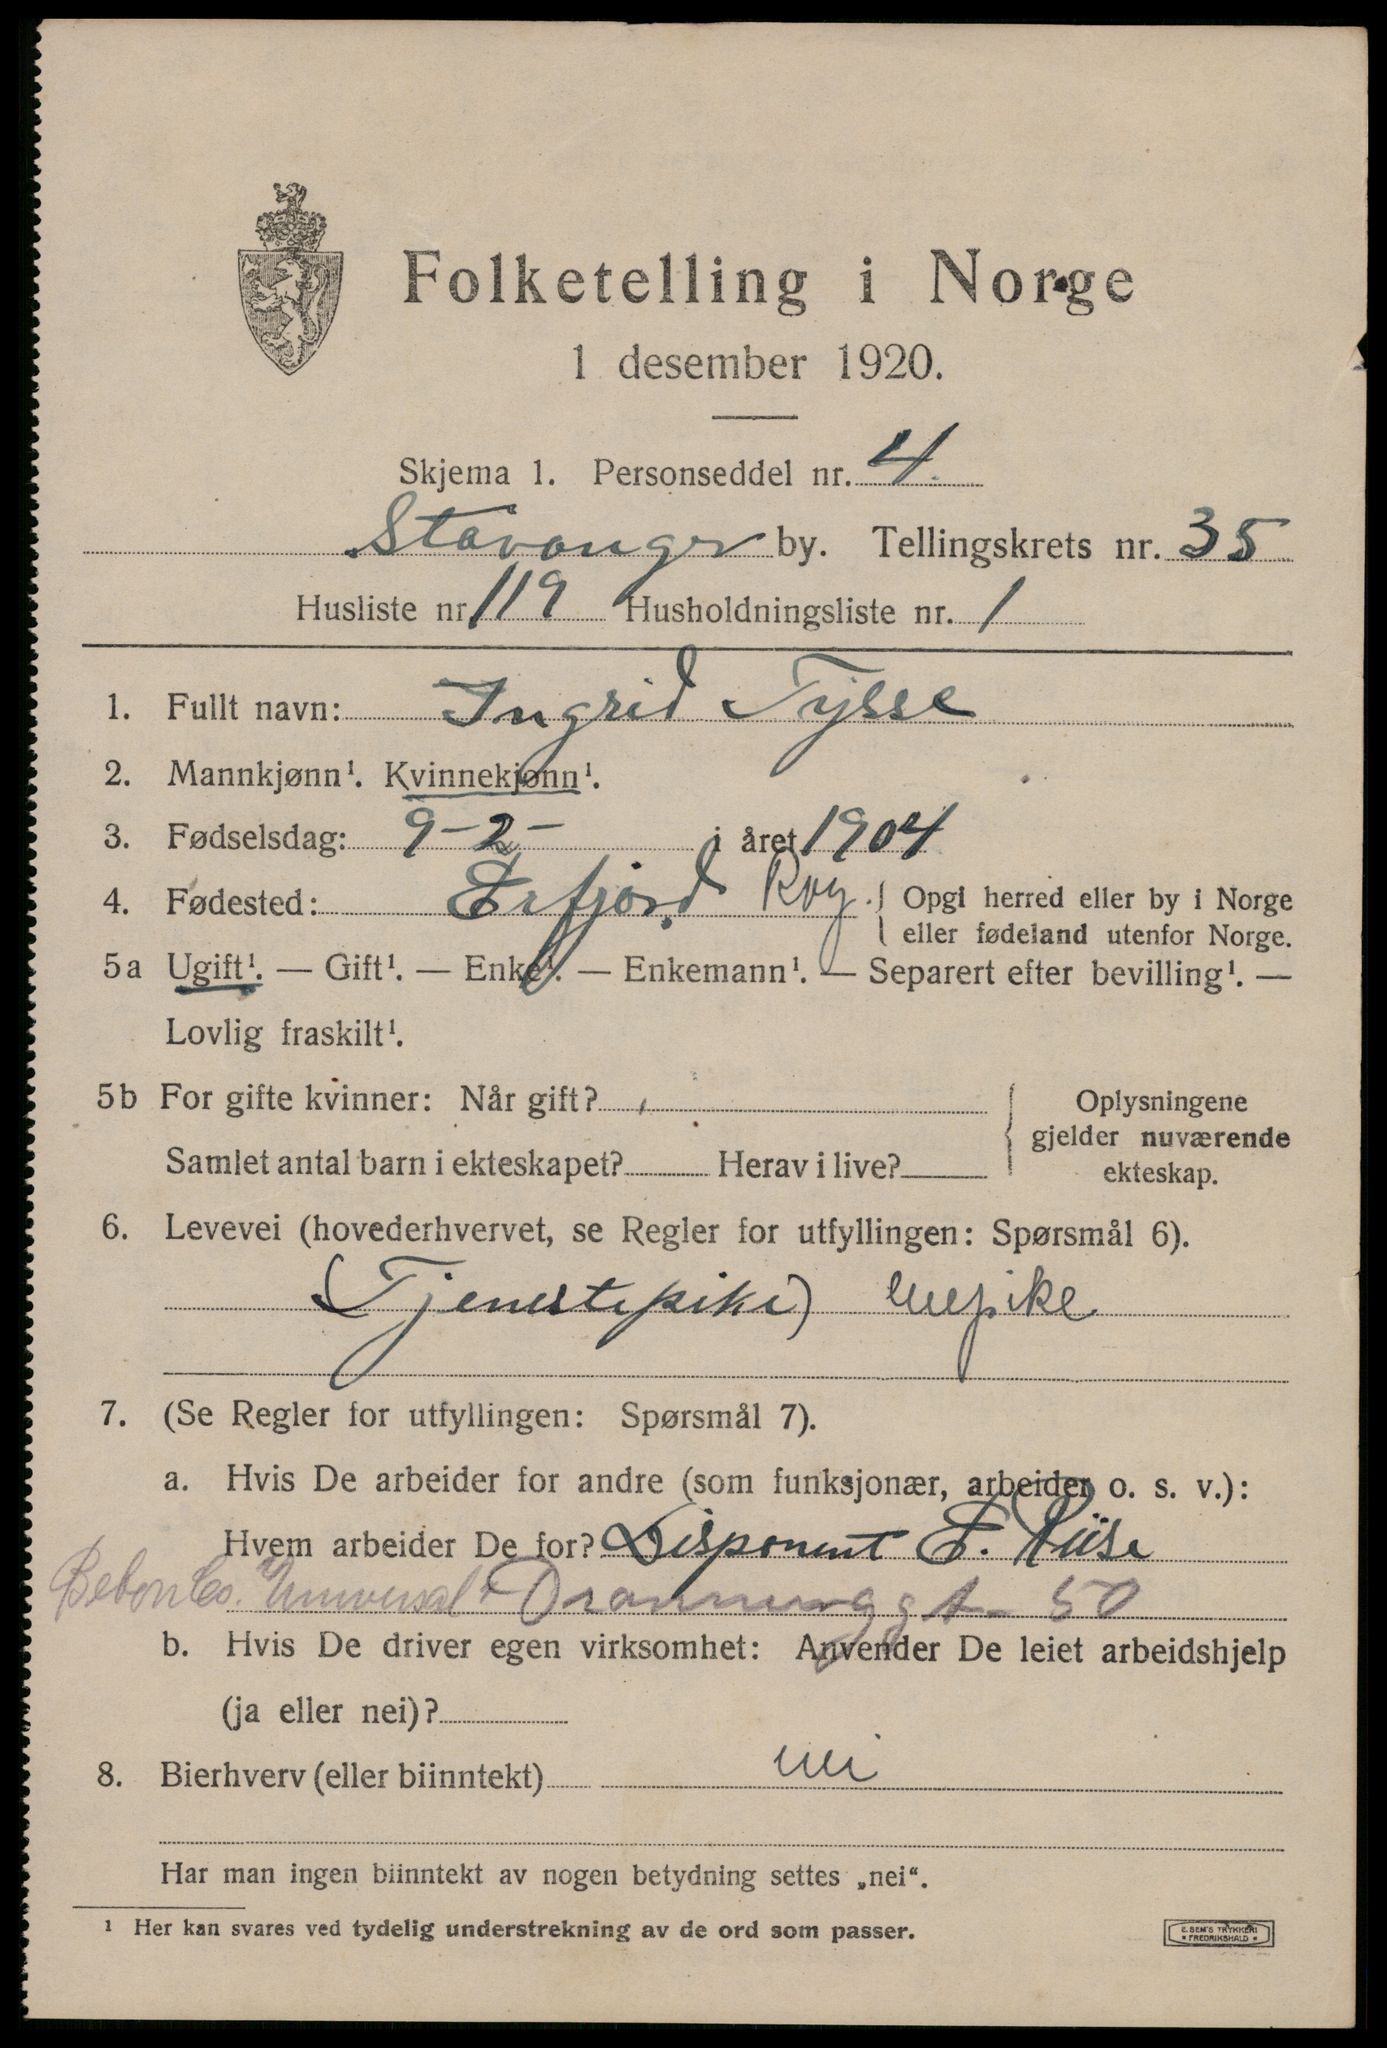 Folketelling i Norge
1 desember 1920.
Skjema 1. Personseddel nr. 4.
Stavanger by. Tellingskrets nr. 35
Husliste nr. 119 Husholdningsliste nr. 1
1. Fullt navn: Ingrid Tysse
2. Mannkjønn¹. Kvinnekjønn¹.
3. Fødselsdag: 9-2- i året 1904
4. Fødested: Erfjord Rog. Opgi herred eller by i Norge
eller fødeland utenfor Norge.
5a Ugift¹. — Gift¹. — Enke¹. — Enkemann¹. — Separert efter bevilling¹. —
Lovlig fraskilt¹.
5b For gifte kvinner: Når gift?
Samlet antal barn i ekteskapet? Herav i live?
Oplysningene
gjelder nuværende
ekteskap.
6. Levevei (hovederhvervet, se Regler for utfyllingen: Spørsmål 6).
(Tjenestepike) enepike
7. (Se Regler for utfyllingen: Spørsmål 7).
a. Hvis De arbeider for andre (som funksjonær, arbeider o. s. v.):
Hvem arbeider De for? Disponent E. Riise
Betonco. Universal Dronningsgt. 50
b. Hvis De driver egen virksomhet: Anvender De leiet arbeidshjelp
(ja eller nei)?
8. Bierhverv (eller biinntekt) nei
Har man ingen biinntekt av nogen betydning settes „nei“.
¹ Her kan svares ved tydelig understrekning av de ord som passer.
E. SEM'S TRYKKERI
FREDRIKSHALD